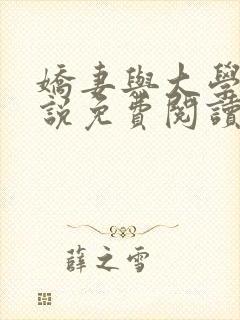 嬌妻與大學
說免費閱讀
薛之雪